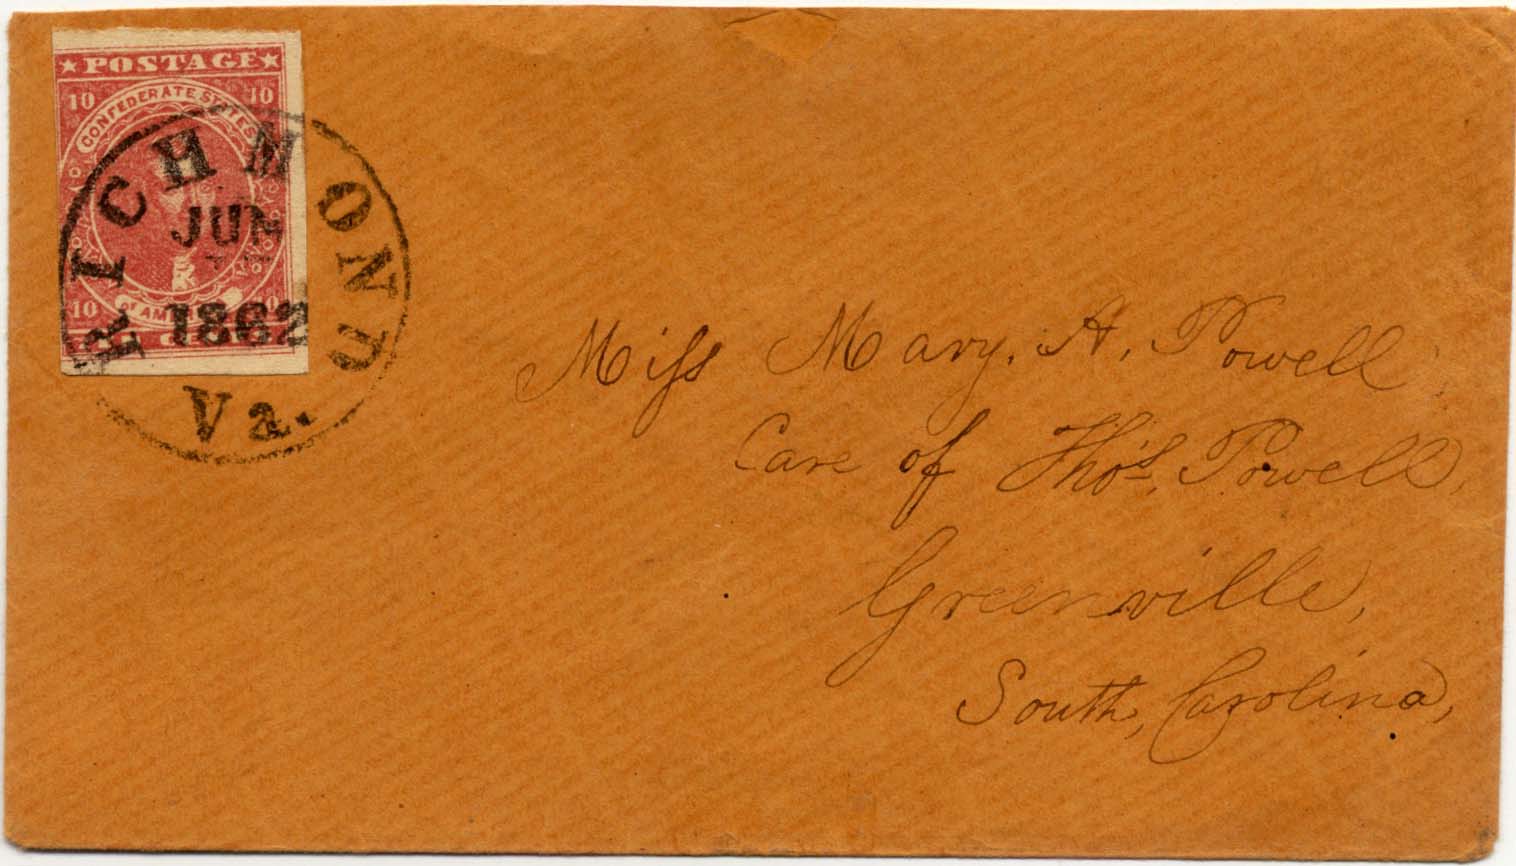 ★ POSTAGE ★
10 10
CONFEDERATE STATES
OF AMERICA
10
CENTS
RICHMOND
JUN
1862
Va.
Miss Mary. A. Powell
Care of Thos. Powell,
Greenville,
South, Carolina,